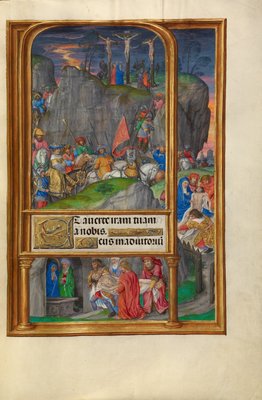 Et auerte iram tuam
a nobis.
Deus in adiutoriū